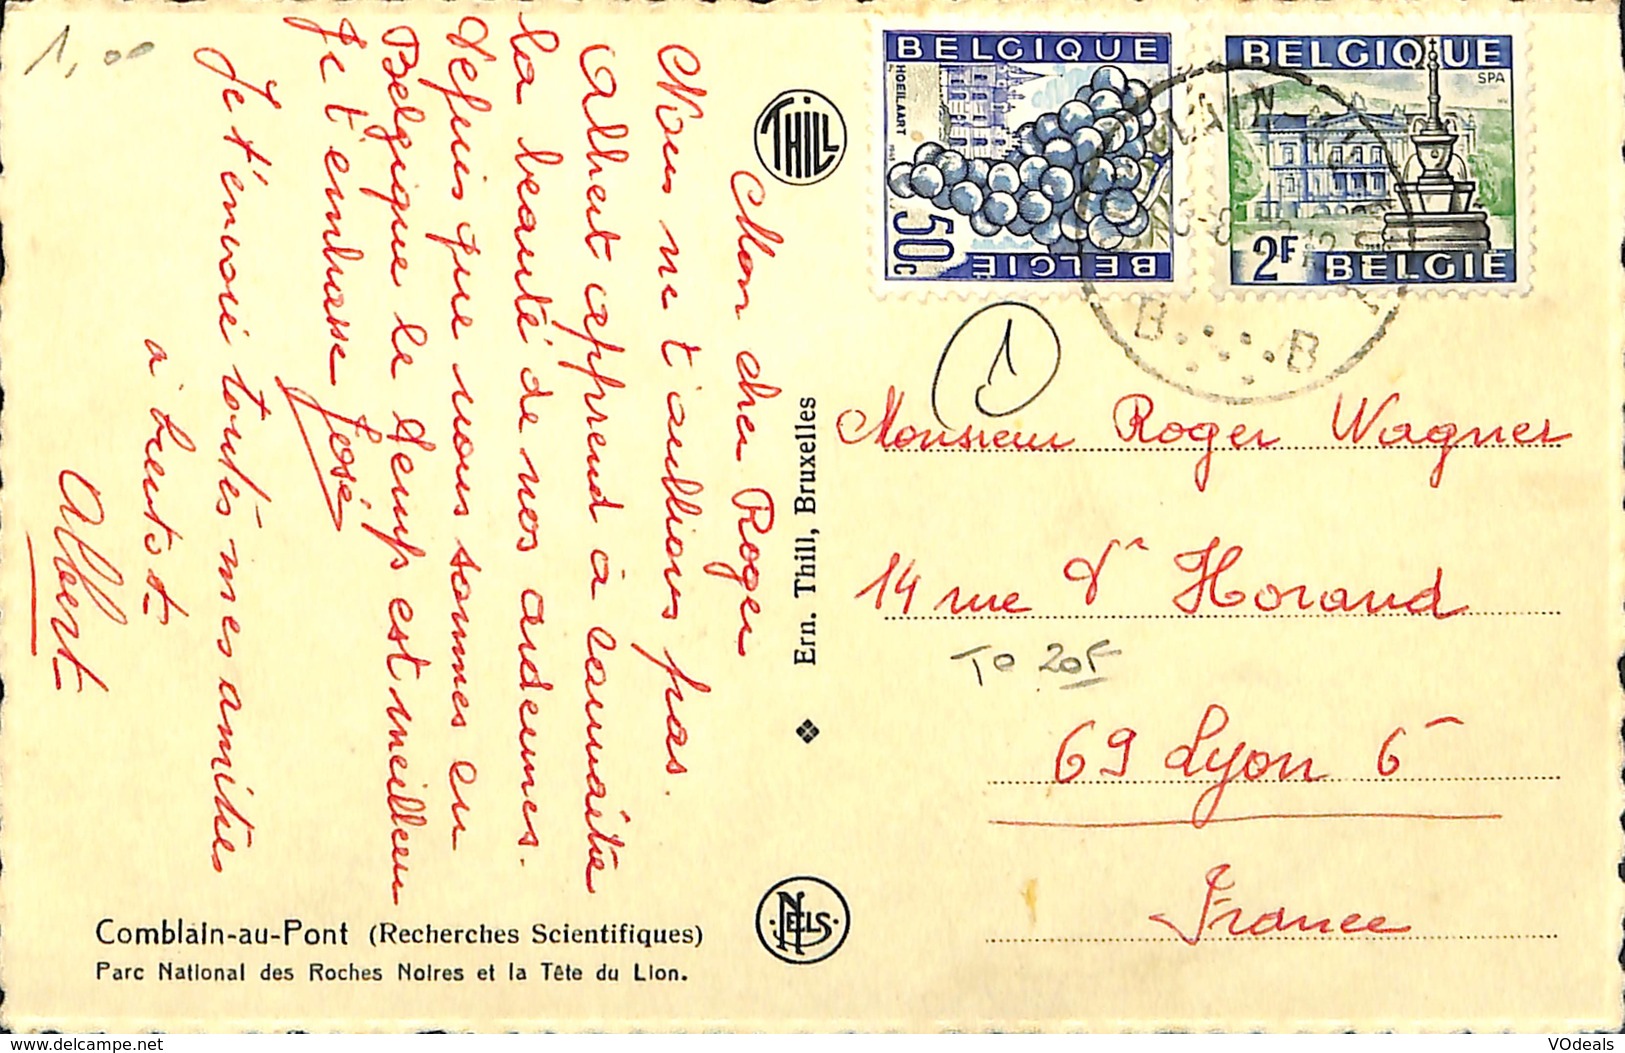 1,00
Mon cher Roger
Nous ne t'oublions pas.
Albert apprend à connaitre
la beauté de nos ardennes.
Depuis que nous sommes en
Belgique le temps est meilleur
Je t'embrasse José
Je t'envoie toutes mes amitiés
a bientot
Albert
Comblain-au-Pont (Recherches Scientifiques)
Parc National des Roches Noires et la Tête du Lion.
THILL
Ern. Thill, Bruxelles
NELS
BELGIQUE
HOEILAART
50c
BELGIE
BELGIQUE
SPA
2F
BELGIE
B B
1
Monsieur Roger Wagner
14 rue Dr Horand
To 20F
69 Lyon 6
France
VOdeals
Made with love by people like you, delcampe.net